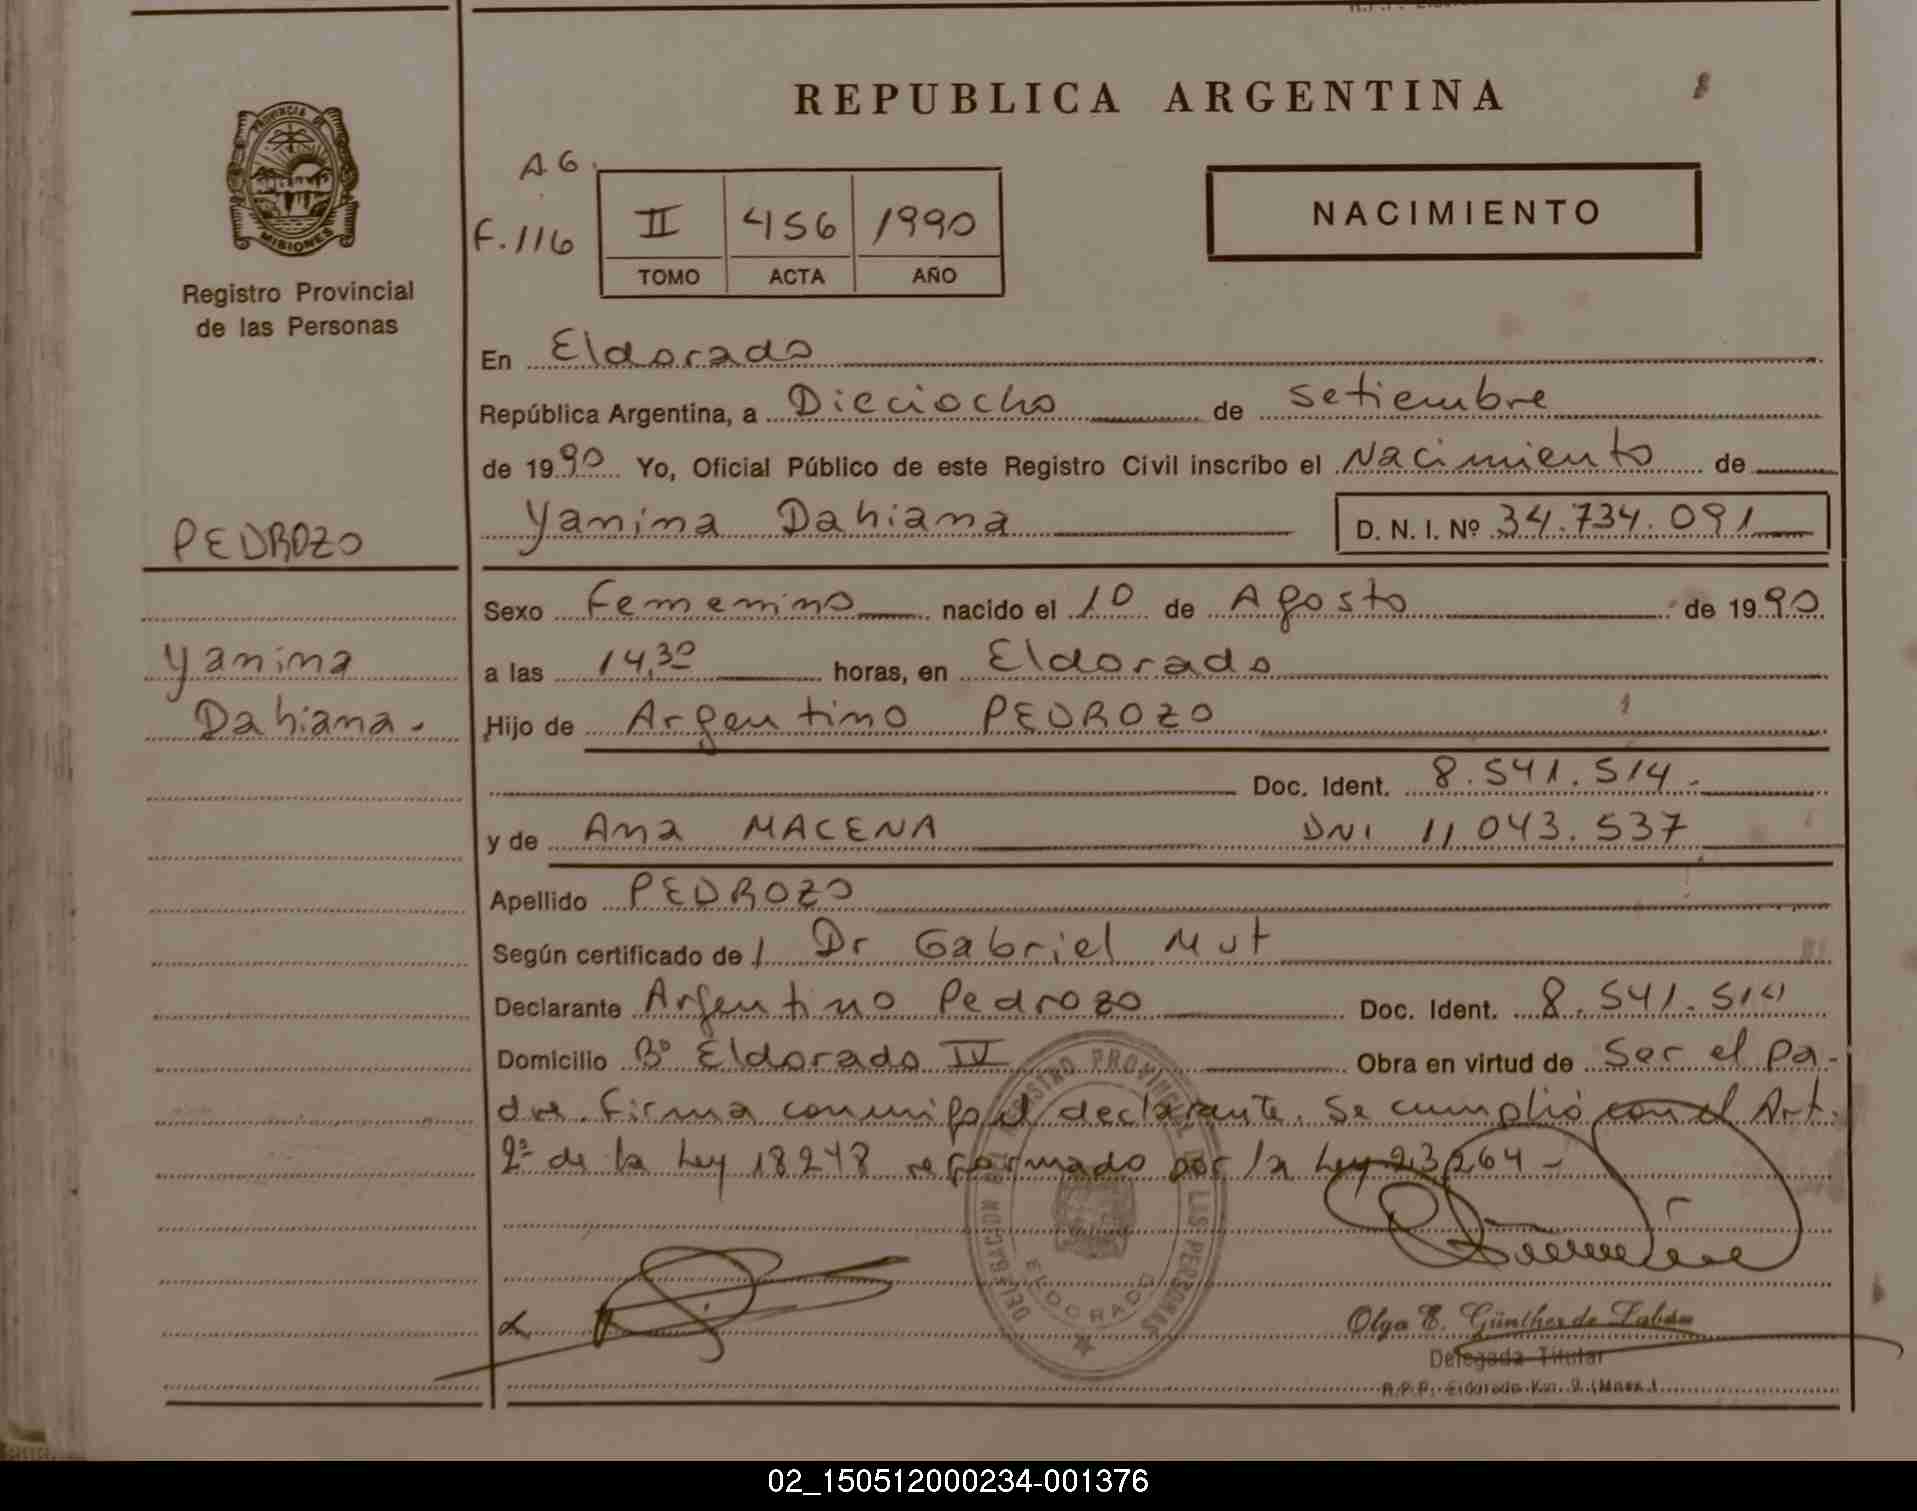 REPUBLICA ARGENTINA
8
PROVINCIA DE
MISIONES
Registro Provincial
de las Personas
A6.
F.116
II 456 1990
TOMO ACTA AÑO
NACIMIENTO
En Eldorado
República Argentina, a Dieciocho de Setiembre
de 1990 Yo, Oficial Público de este Registro Civil inscribo el Nacimiento de
Yanina Dahiana D. N. I. Nº 34.734.091
PEDROZO
Yanina
Dahiana.
Sexo Femenino nacido el 10 de Agosto de 1990
a las 14,30 horas, en Eldorado
Hijo de Argentino PEDROZO
Doc. Ident. 8.541.514.
y de Ana MACENA DNI 11.043.537
Apellido PEDROZO
Según certificado de / Dr Gabriel Mut
Declarante Argentino Pedrozo Doc. Ident. 8.541.514
Domicilio Bº Eldorado IV Obra en virtud de Ser el pa-
dre. Firma conmigo el declarante. Se cumplió con el Art.
2º de la Ley 18248 reformado por la Ley 23264-
REGISTRO PROVINCIAL DE LAS PERSONAS
DELEGACION
ELDORADO
Olga E. Günther de Labán
Delegada Titular
R.P.P. Eldorado Km. 9 (Mnes.)
02_150512000234-001376